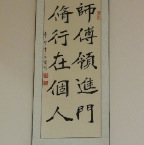 師傅領進門
脩行在個人